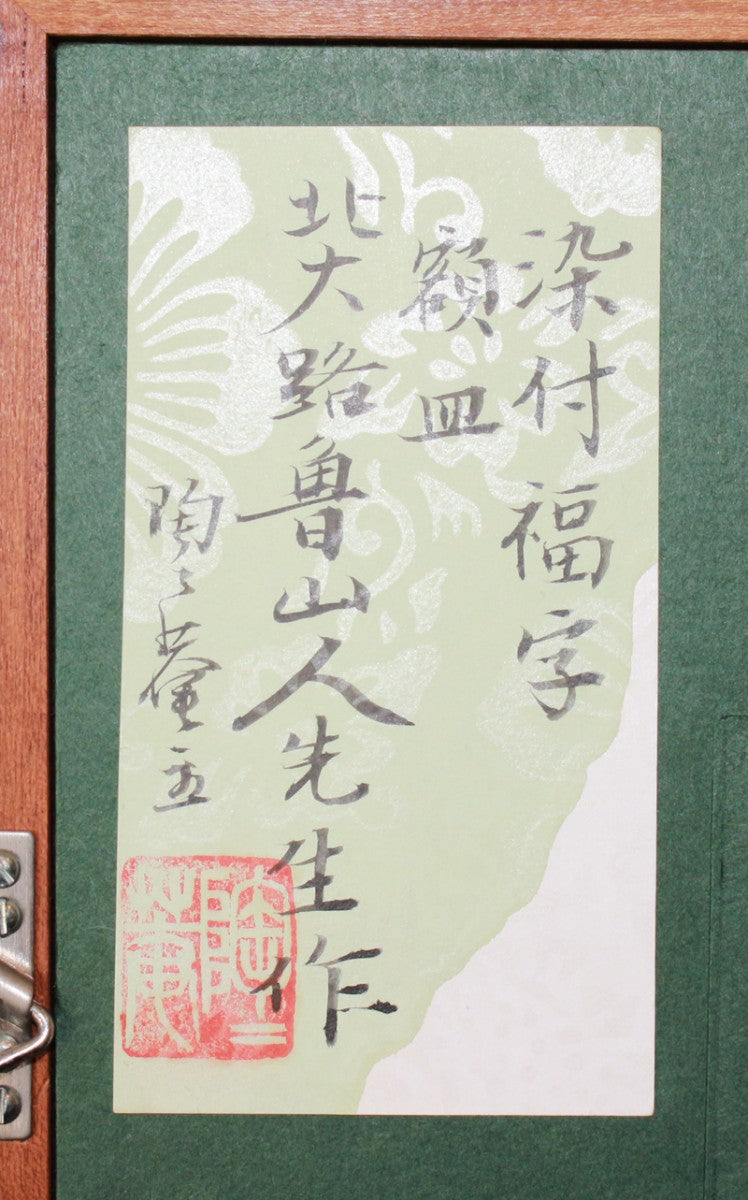 染付福字
額皿
北大路魯山人先生作
陶々菴
陶々菴